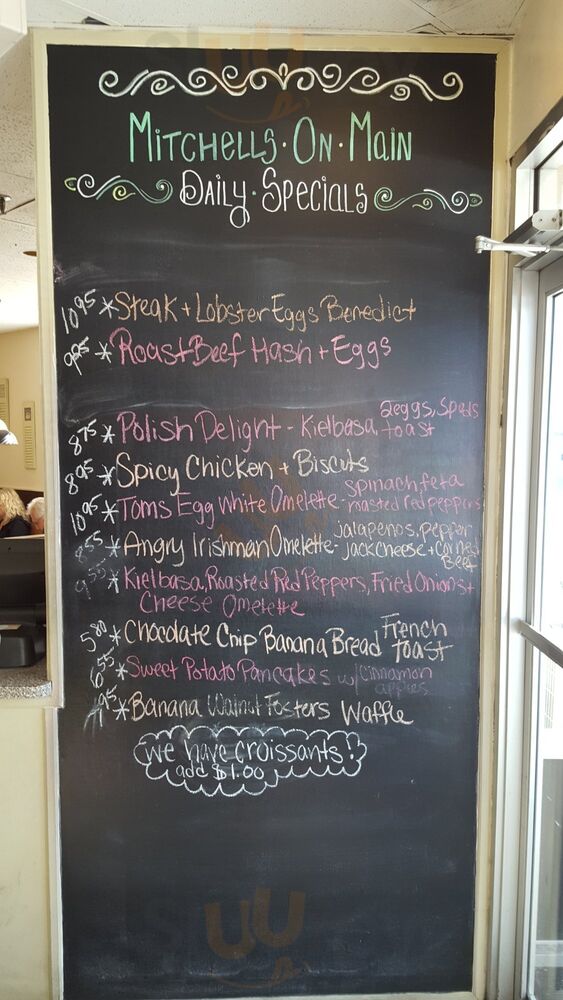 Mitchells · On · Main
Daily · Specials
10.95 * Steak + Lobster Eggs Benedict
9.95 * Roast Beef Hash + Eggs
8.75 * Polish Delight - Kielbasa, 2 eggs, Spuds toast
8.95 * Spicy Chicken + Biscuts
10.95 * Toms Egg White Omelette - spinach feta roasted red peppers
8.55 * Angry Irishman Omelette - jalapenos, pepper jack cheese + corned Beef
9.55 * Kielbasa, Roasted Red Peppers, Fried Onions +
Cheese Omelette
5.80 * Chocolate Chip Banana Bread French Toast
6.55 * Sweet Potato Pancakes w/ cinnamon apples
* Banana Walnut Fosters Waffle
we have croissants!
add $1.00